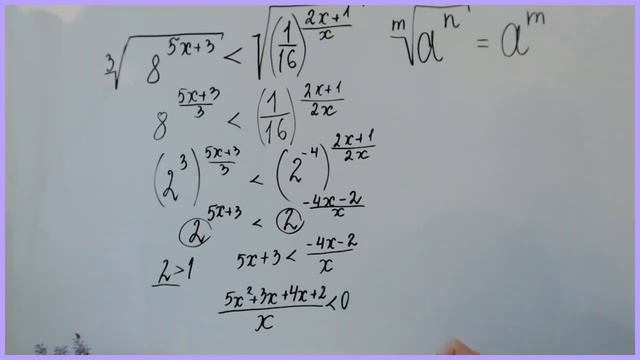 ∛(8^(5x+3)) < √((1/16)^((2x+1)/x))
ᵐ√(aⁿ) = a^m
8^((5x+3)/3) < (1/16)^((2x+1)/(2x))
(2³)^((5x+3)/3) < (2⁻⁴)^((2x+1)/(2x))
2^(5x+3) < 2^((-4x-2)/x)
2>1
5x+3 < (-4x-2)/x
(5x²+3x+4x+2)/x <0